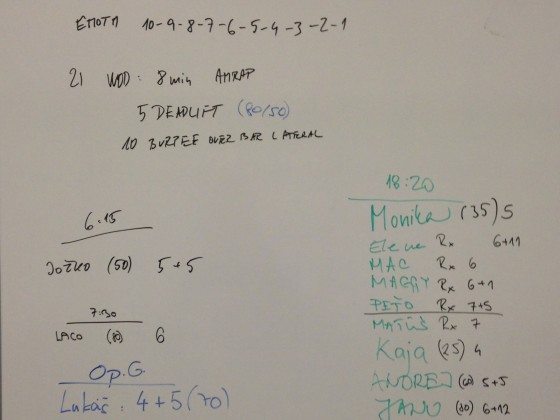 EMOTM 10-9-8-7-6-5-4-3-2-1
21 WOD: 8 min AMRAP
5 DEADLIFT (80/50)
10 BURPEE OVER BAR LATERAL
6:15
JOŽKO (50) 5+5
7:30
LACO (80) 6
Op.G.
Lukáš: 4+5 (70)
18:20
Monika (35) 5
Elena Rx 6+11
MAC Rx 6
MAGGY Rx 6+1
PEŤO Rx 7+5
MATÚŠ Rx 7
Kaja (25) 4
ANDREJ (60) 5+5
JANO 6+12